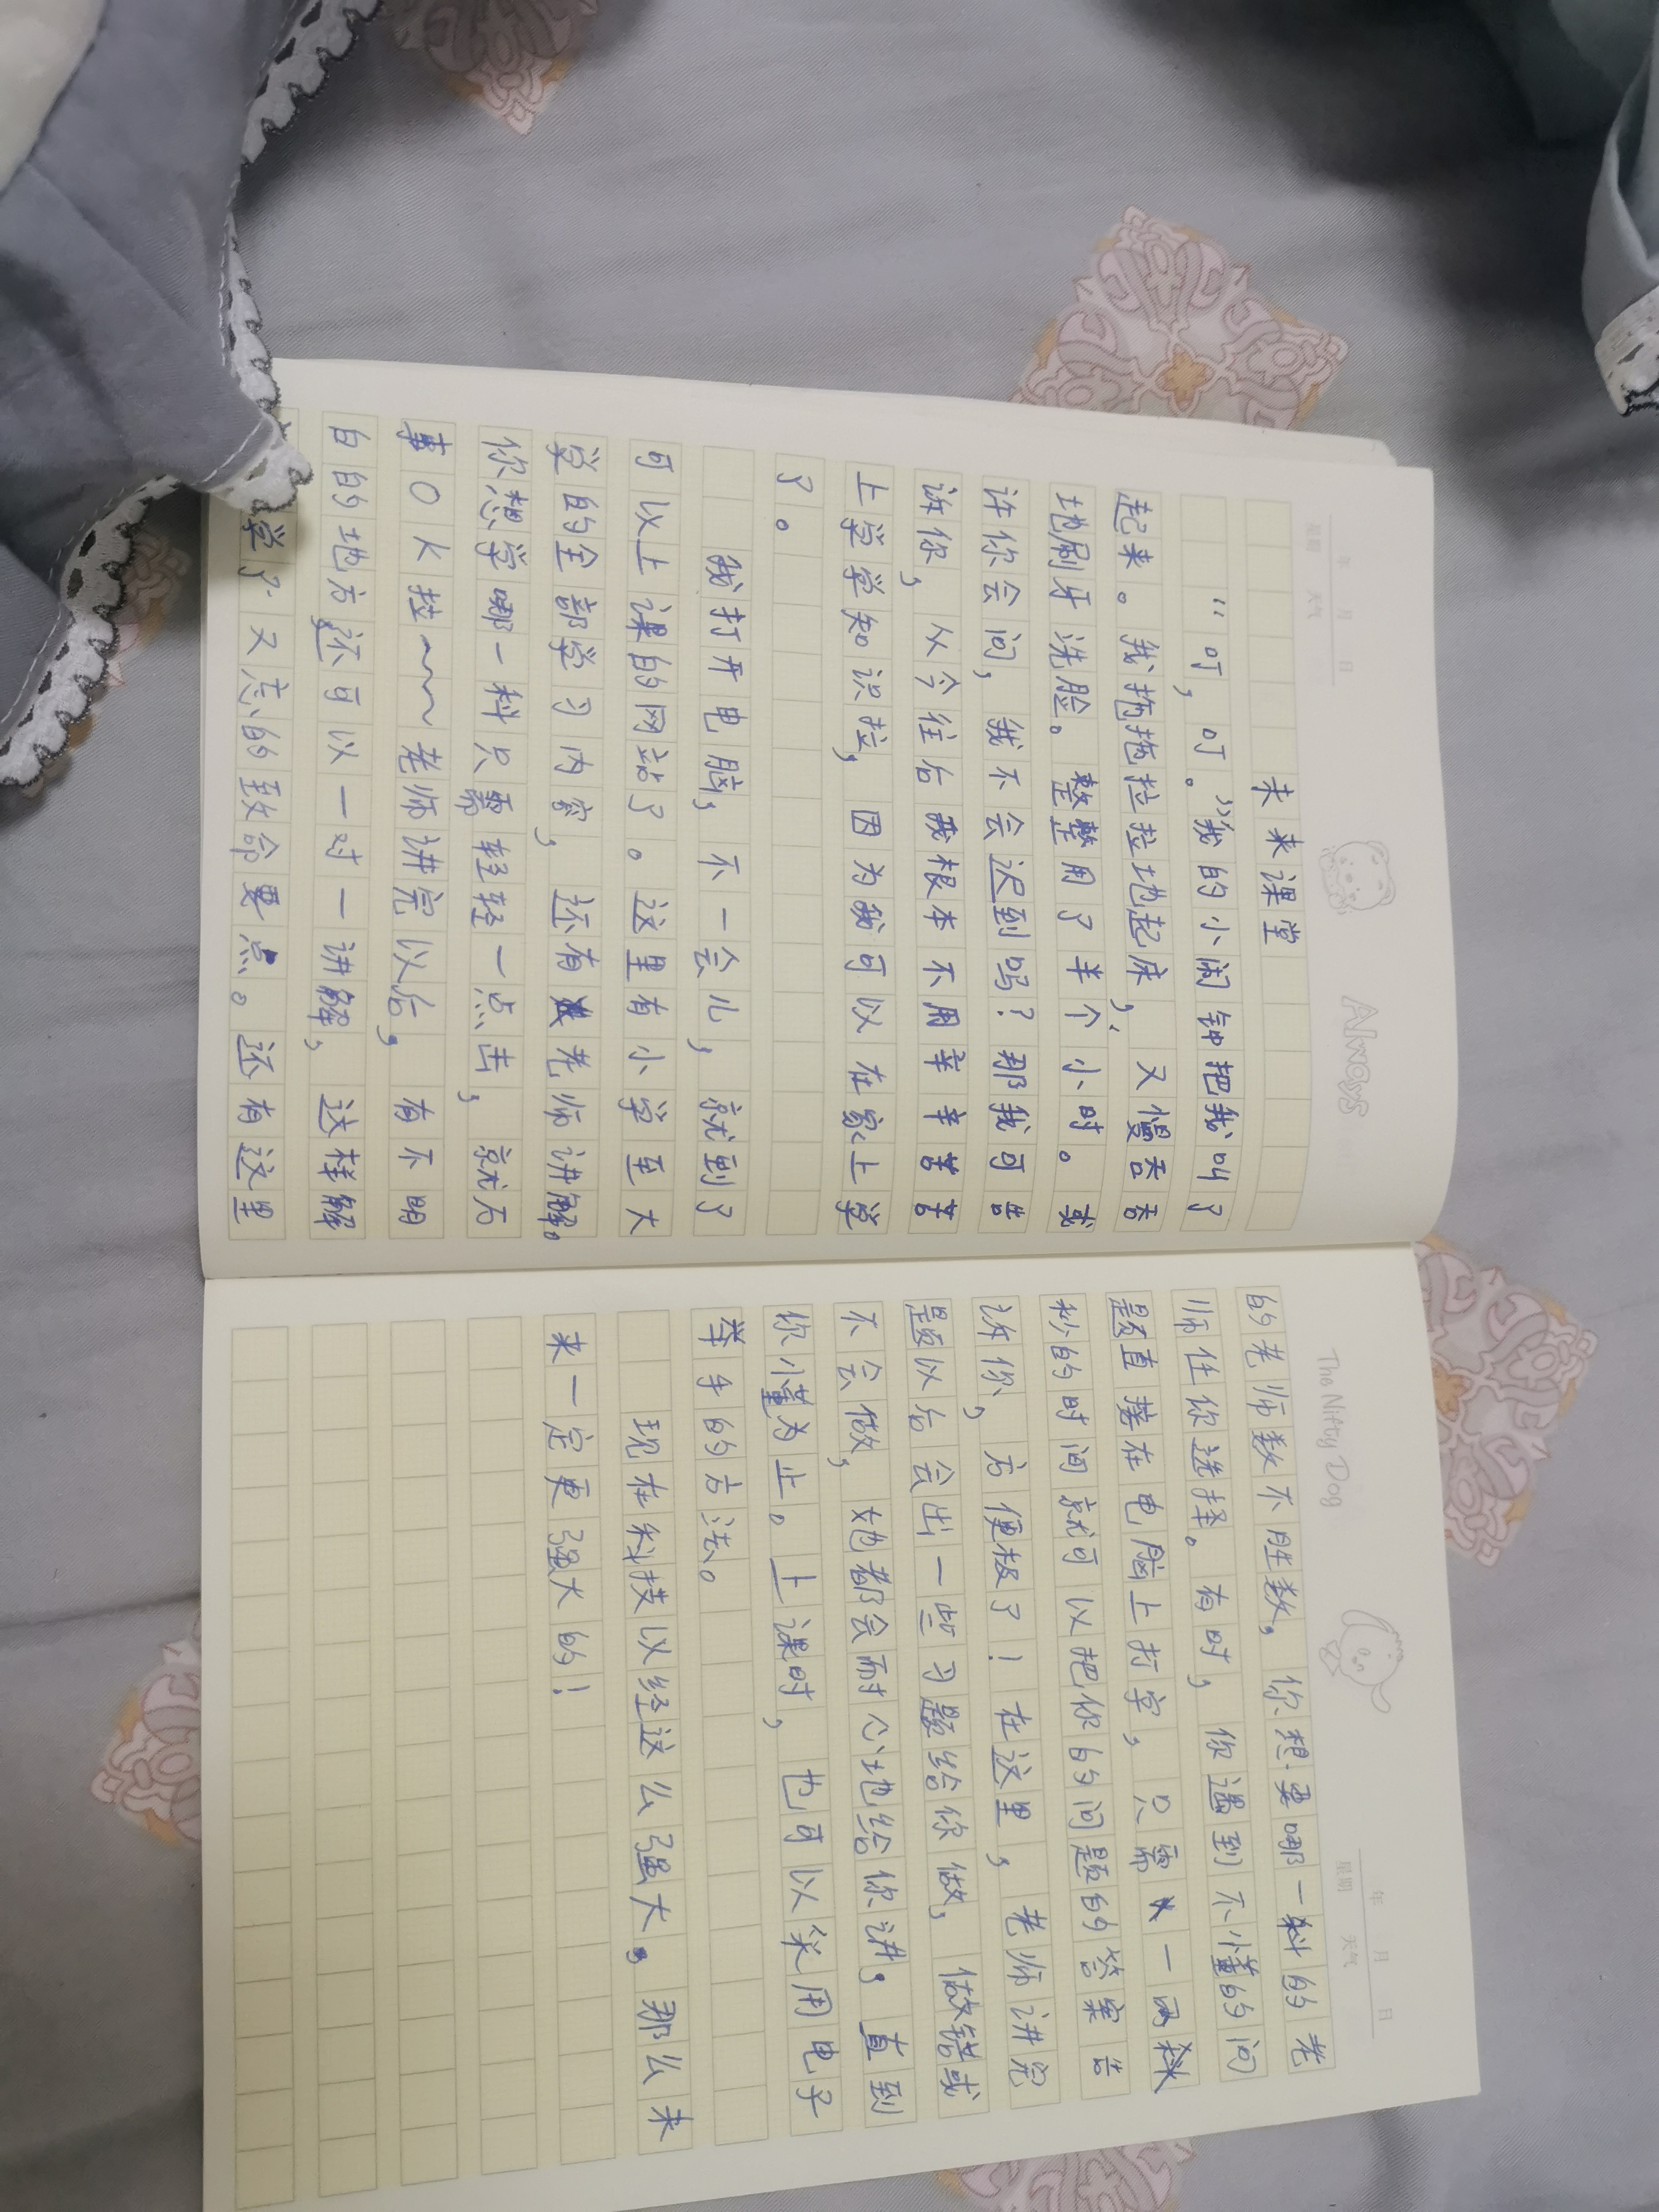 年 月 日
星期 天气
Always
未来课堂
“叮，叮。”我的小闹钟把我叫了
起来。我拖拖拉拉地起床，又慢吞吞
地刷牙洗脸。整整用了半个小时。或
许你会问，我不会迟到吗？那我可告
诉你，从今往后我根本不用辛辛苦苦
上学学知识拉，因为我可以在家上学
了。
我打开电脑，不一会儿，就到了
可以上课的网站了。这里有小学至大
学的全部学习内容，还有老师讲解。
你想学哪一科只需轻轻一点击，就万
事OK拉～～老师讲完以后，有不明
白的地方还可以一对一讲解，这样解
学了又忘的致命要点。还有这里
The Nifty Dog
年 月 日
星期 天气
的老师数不胜数，你想要哪一科的老
师任你选择。有时，你遇到不懂的问
题直接在电脑上打字，只需一两
秒的时间就可以把你的问题的答案告
诉你，方便极了！在这里，老师讲完
题以后会出一些习题给你做，做错或
不会做，她都会耐心地给你讲，直到
你懂为止。上课时，也可以采用电子
举手的方法。
现在科技以经这么强大，那么未
来一定更强大的！